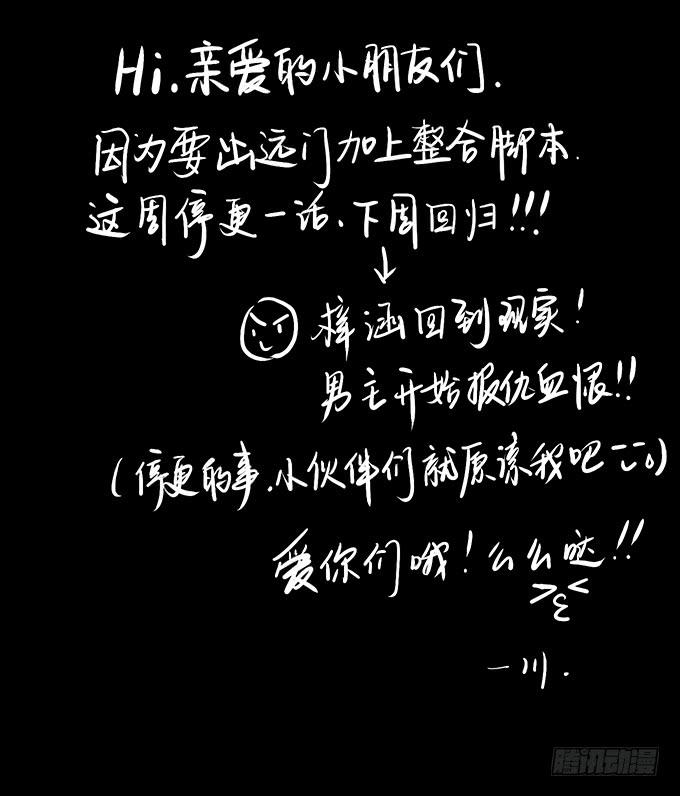 Hi.亲爱的小朋友们.
因为要出远门加上整合脚本.
这周停更一话、下周回归!!!
↓
梓涵回到现实!
男主开始报仇血恨!!
(停更的事.小伙伴们就原谅我吧 ー。ー)
爱你们哦!么么哒!!
>ε<
一川.
腾讯动漫